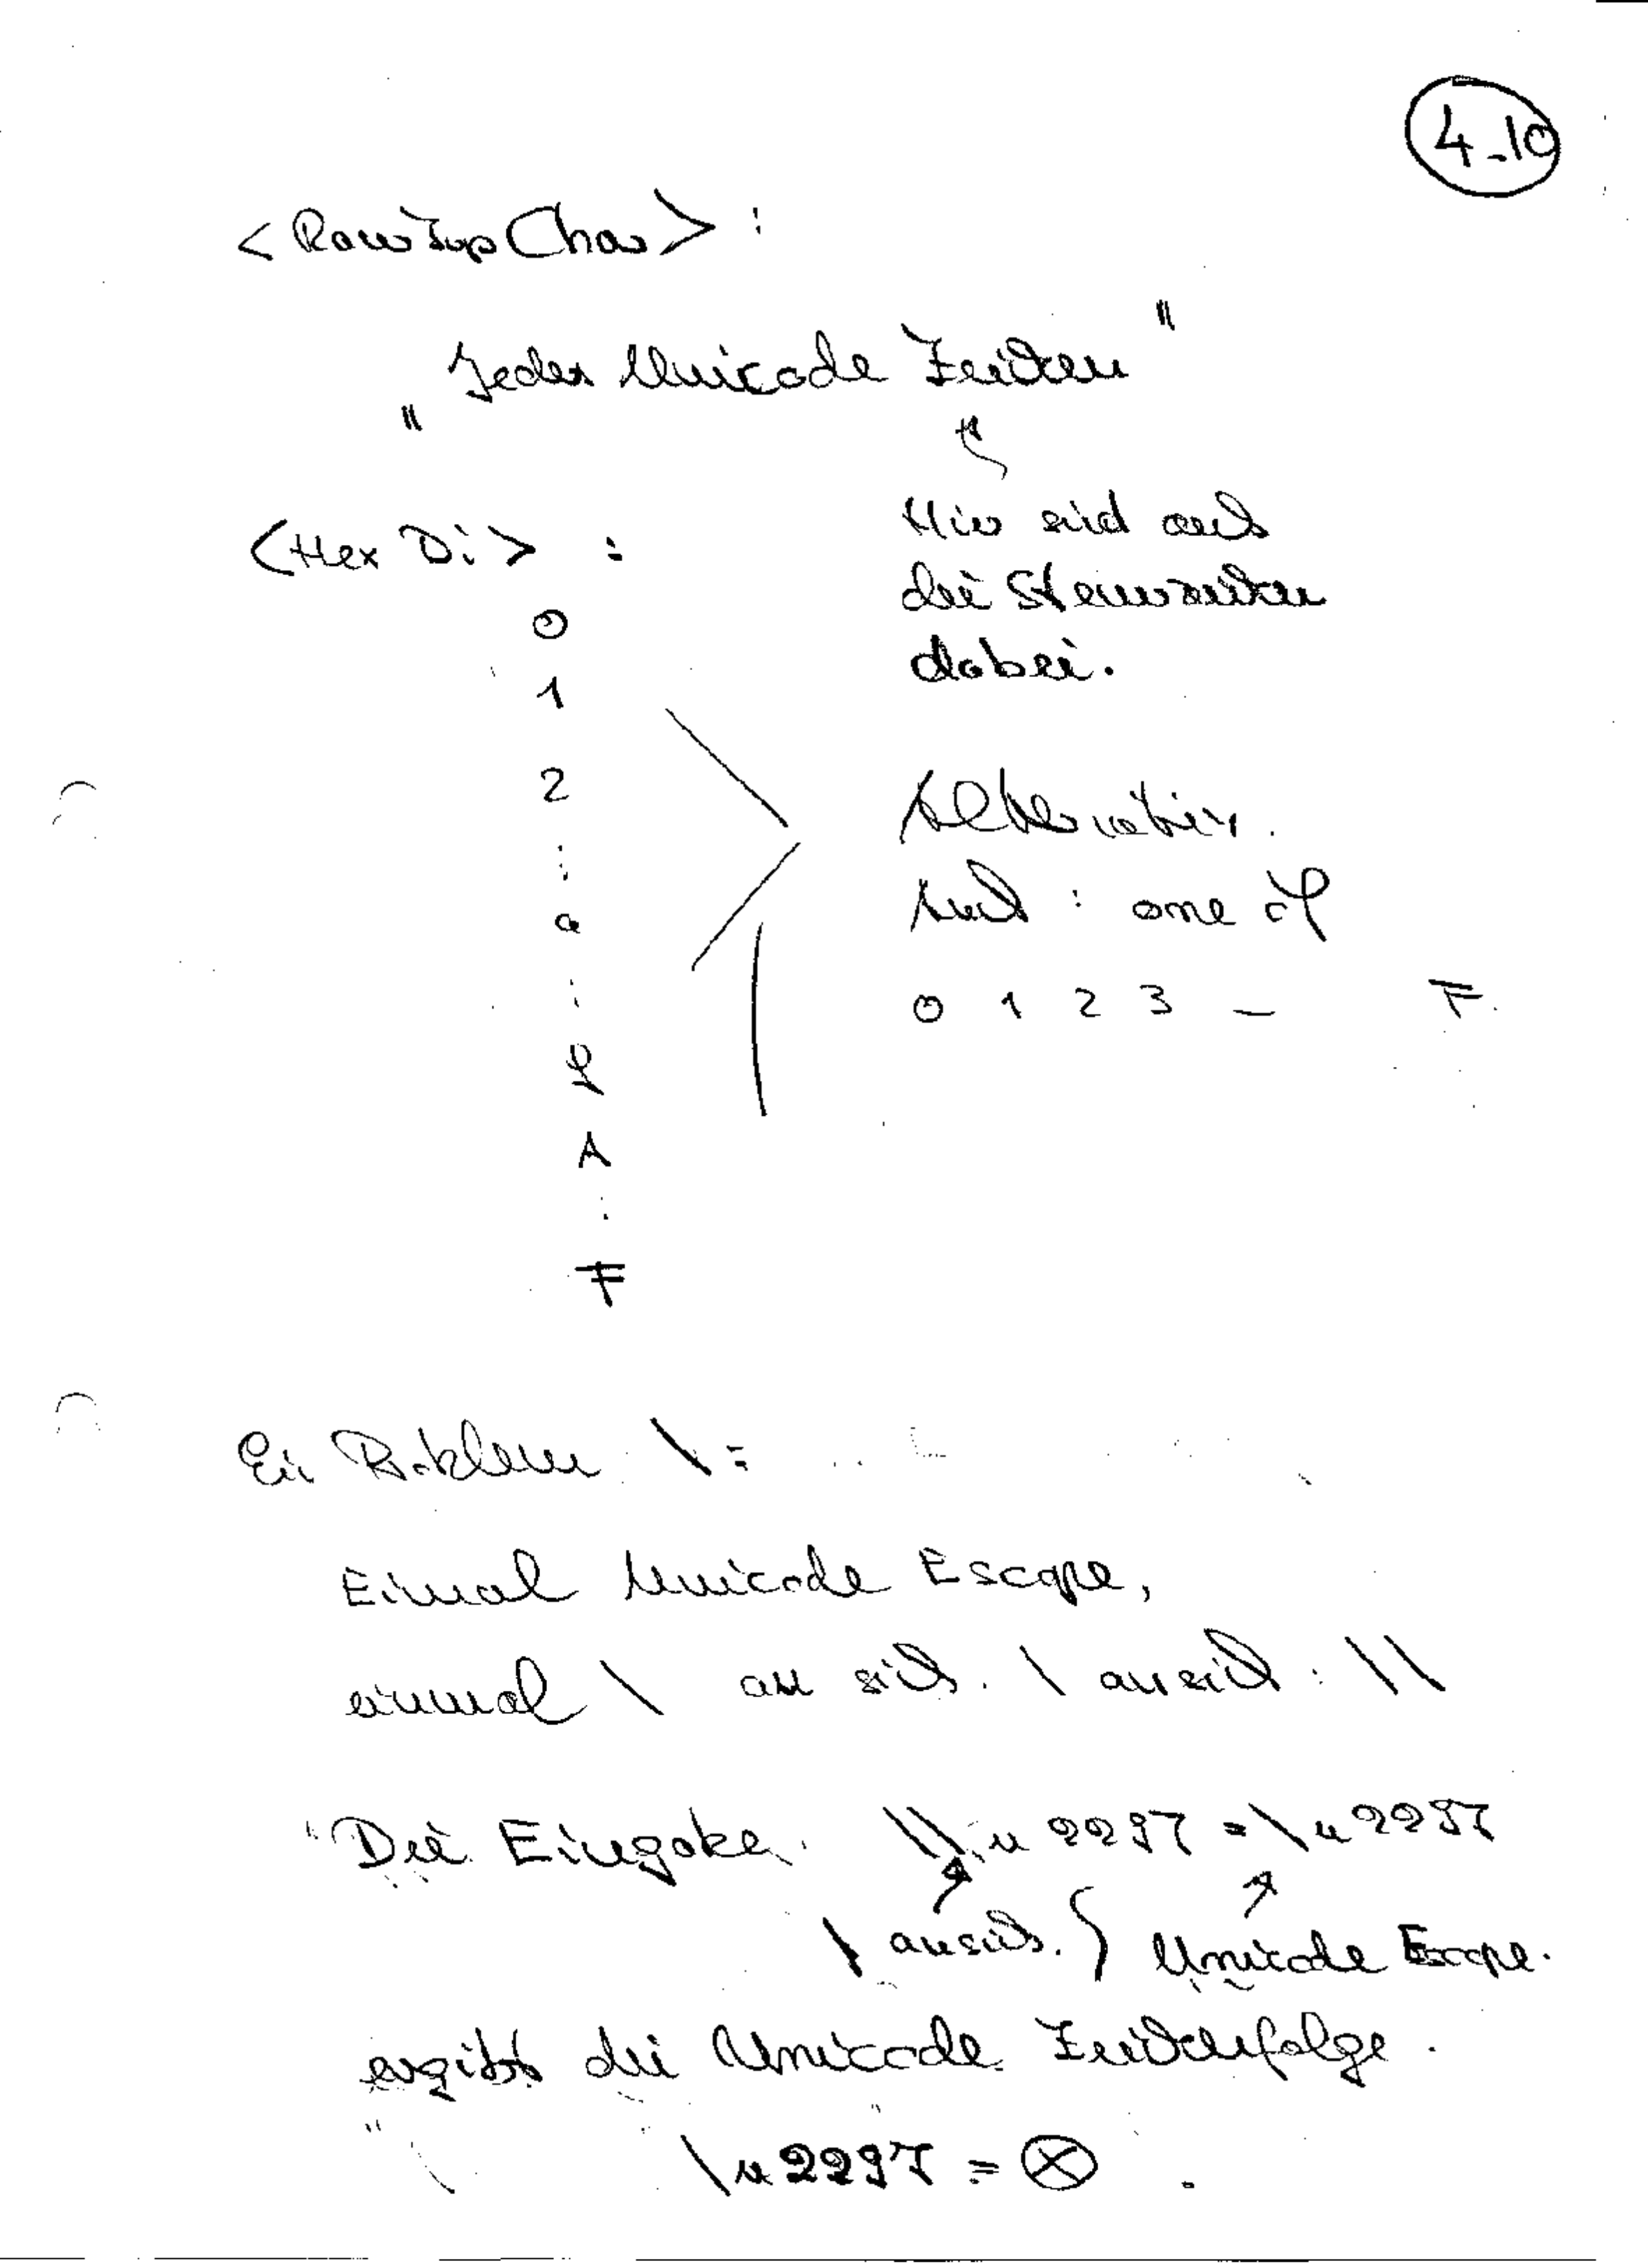 4-10
<RawInpChar> :
"Jedes Unicode Zeichen"
<Hex Di> :
Hier sind auch
die Steuerzeichen
dabei.
0
1
2
:
a
:
f
A
:
F
Alternativ.
Auch : one of
0 1 2 3 — F.
Ein Problem \ :
Einmal Unicode Escape,
einmal \ an sich. \ ansich : \\
Die Eingabe. \\u2297 = \u2297
\ ansich. Unicode Escape.
ergibt die Unicode Zeichenfolge.
\u2297 = ⊗ .